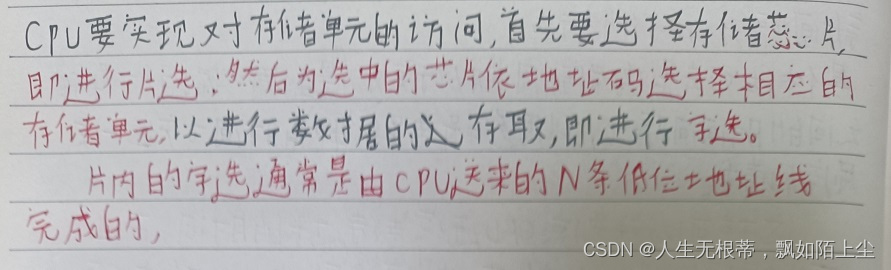 CPU要实现对存储单元的访问,首先要选择存储芯片,
即进行片选;然后为选中的芯片依地址码选择相应的
存储单元,以进行数据的存取,即进行字选。
片内的字选通常是由CPU送来的N条低位地址线
完成的,
CSDN @人生无根蒂，飘如陌上尘